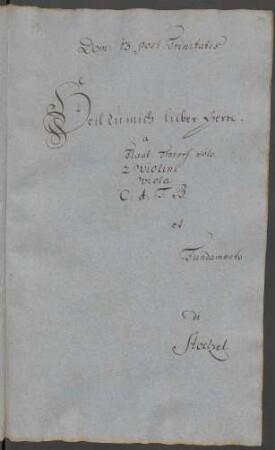 Dom: 13 post Trinitatis
Heil du mich lieber Herre.
a
Flaut. Travers. solo
2 Violini
Viola
C. A. T. B
et
Fundamento
di
Stoelzel